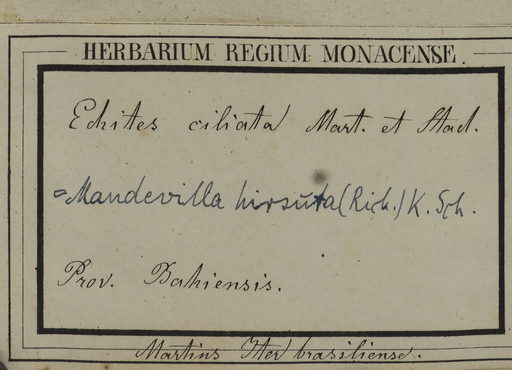 HERBARIUM REGIUM MONACENSE.
Echites ciliata Mart. et Stad.
=Mandevilla hirsuta (Rich.) K. Sch.
Prov. Bahiensis.
Martius Iter brasiliense.